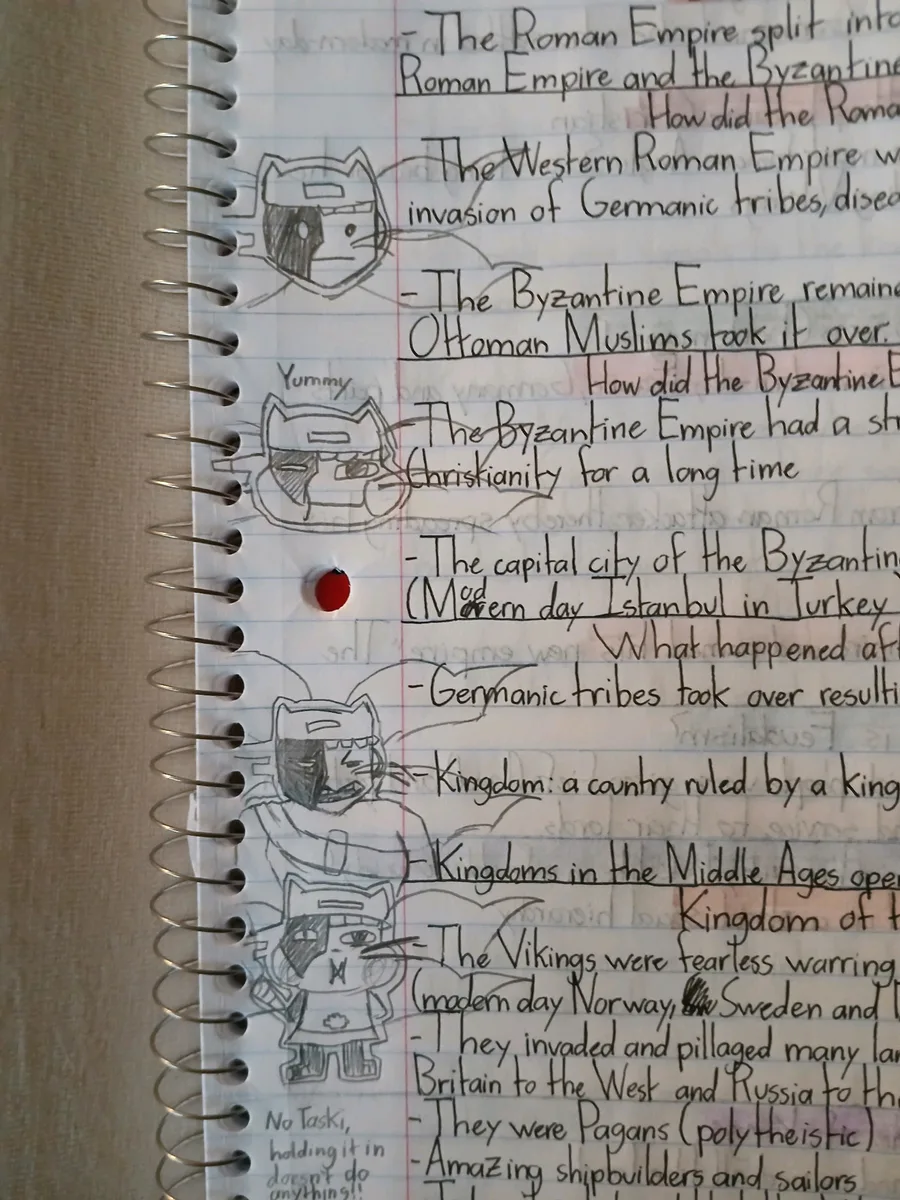 - The Roman Empire split into
Roman Empire and the Byzantine
How did the Roma
- The Western Roman Empire w
invasion of Germanic tribes, disea
- The Byzantine Empire remaine
Ottoman Muslims took it over.
How did the Byzantine E
Yummy
- The Byzantine Empire had a st
Christianity for a long time
- The capital city of the Byzantin
(Modern day Istanbul in Turkey
What happened aft
- Germanic tribes took over resulti
- Kingdom: a country ruled by a king
- Kingdoms in the Middle Ages ope
Kingdom of t
- The Vikings were fearless warring
(modern day Norway, Sweden and
- They invaded and pillaged many la
Britain to the West and Russia to th
- They were Pagans (polytheistic)
- Amazing shipbuilders and sailors
No Taski,
holding it in
doesn't do
anything!!